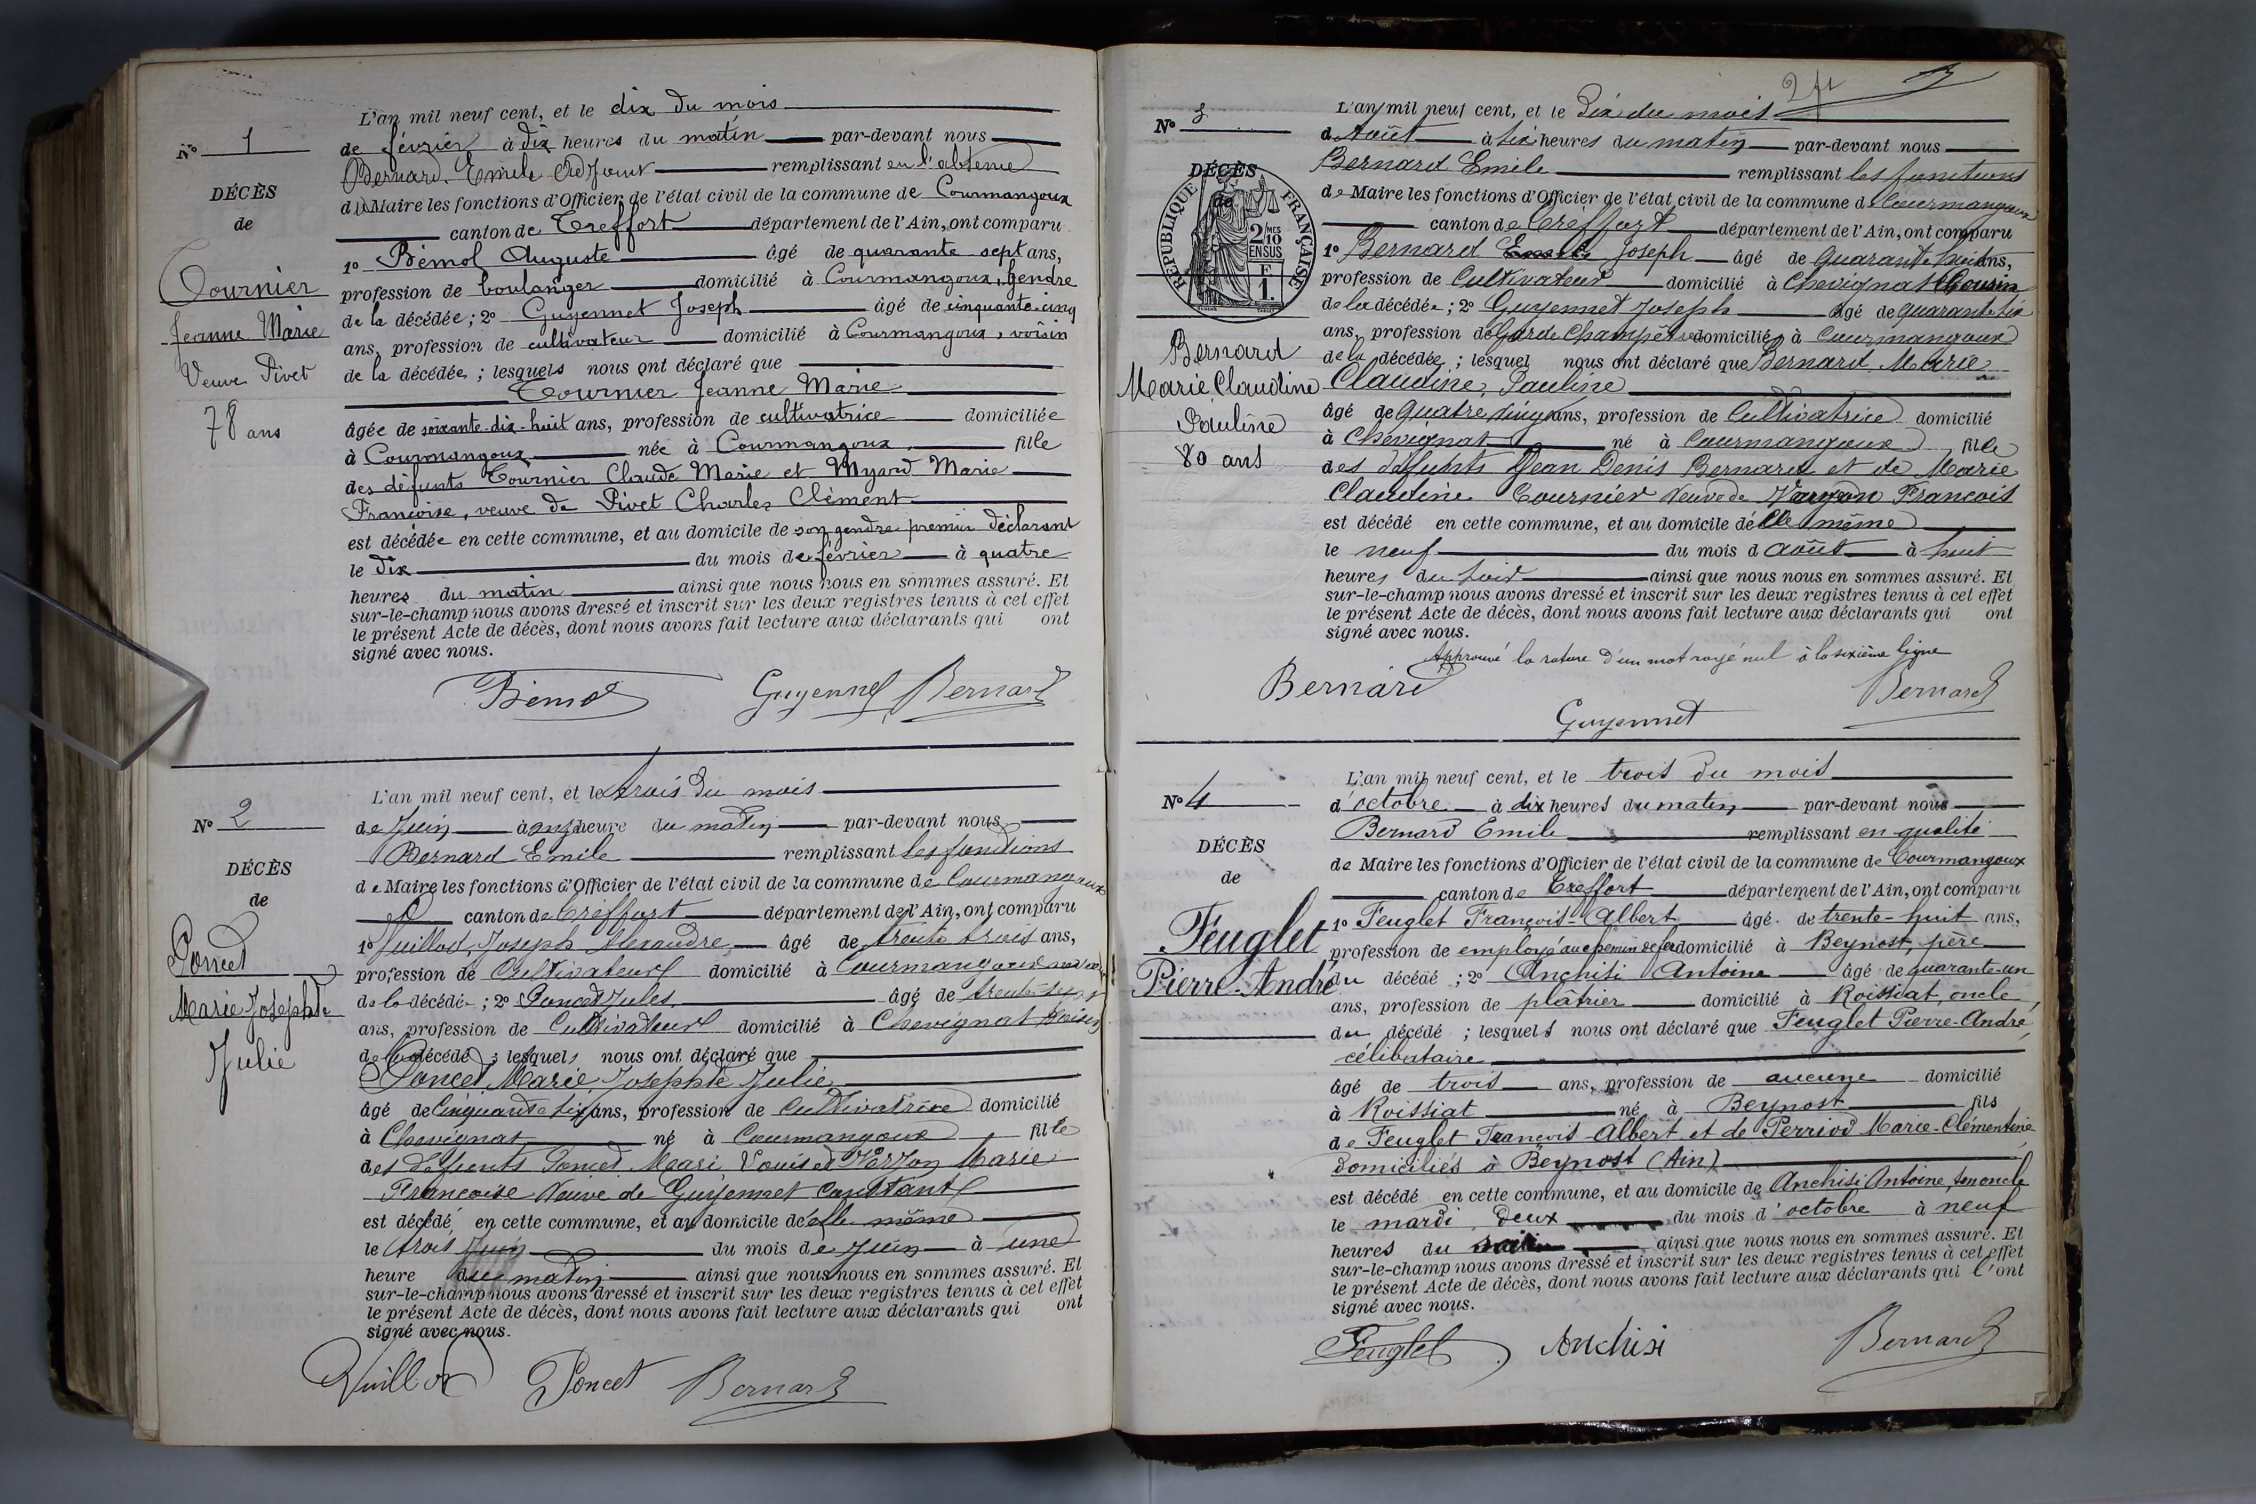 L'an mil neuf cent, et le dix du mois
N° 1
de février à dix heures du matin par-devant nous
Bernard Emile Adjoint remplissant en l'absence
DÉCÈS
du Maire les fonctions d'Officier de l'état civil de la commune de Courmangoux
de
canton de Treffort département de l'Ain, ont comparu
1° Bémol Auguste âgé de quarante sept ans,
Tournier
profession de boulanger domicilié à Courmangoux, Gendre
Jeanne Marie
de la décédée; 2° Guyennet Joseph âgé de cinquante-cinq
ans, profession de cultivateur domicilié à Courmangoux, voisin
Veuve Pivet
de la décédée; lesquels nous ont déclaré que
Tournier Jeanne Marie
78 ans
âgée de soixante-dix-huit ans, profession de cultivatrice domiciliée
à Courmangoux née à Courmangoux fille
des défunts Tournier Claude Marie et Myard Marie
Françoise, veuve de Pivet Charles Clément
est décédée en cette commune, et au domicile de son gendre premier déclarant
le dix du mois de février à quatre
heures du matin ainsi que nous nous en sommes assuré. Et
sur-le-champ nous avons dressé et inscrit sur les deux registres tenus à cet effet
le présent Acte de décès, dont nous avons fait lecture aux déclarants qui ont
signé avec nous.
Bémol Guyennet Bernard
L'an mil neuf cent, et le trois du mois
N° 2
de Juin à onze heure du matin par-devant nous
Bernard Emile remplissant les fonctions
DÉCÈS
de Maire les fonctions d'Officier de l'état civil de la commune de Courmangoux
de
canton de Treffort département de l'Ain, ont comparu
1° Vuillod, Joseph Alexandre âgé de trente trois ans,
Poncet
profession de Cultivateur domicilié à Courmangoux
Marie Josephte
de la décédée; 2° Poncet Jules âgé de
ans, profession de Cultivateur domicilié à Chevignat Voisin
Julie
de la décédé; lesquels nous ont déclaré que
Poncet Marie Josephte Julie
âgé de Cinquante six ans, profession de Cultivatrice domicilié
à Chevignat né à Courmangoux fille
des défunts Poncet Mari Louis et Marie
Françoise Veuve de Guyennet Constant
est décédé en cette commune, et au domicile d'elle même
le trois Juin du mois de Juin à une
heure du matin ainsi que nous nous en sommes assuré. Et
sur-le-champ nous avons dressé et inscrit sur les deux registres tenus à cet effet
le présent Acte de décès, dont nous avons fait lecture aux déclarants qui ont
signé avec nous.
Vuillod Poncet Bernard
L'an mil neuf cent, et le Dix du mois
N° 3
d'Août à dix heures du matin par-devant nous
Bernard Emile remplissant les fonctions
DÉCÈS
de
RÉPUBLIQUE FRANÇAISE
2/10 MES EN SUS
F. 1.
de Maire les fonctions d'Officier de l'état civil de la commune de Courmangoux
canton de Treffort département de l'Ain, ont comparu
1° Bernard Emile Joseph âgé de Quarante huit ans,
profession de Cultivateur domicilié à Chevignat Cousin
de la décédée; 2° Guyennet Joseph âgé de quarante six
ans, profession de Garde Champêtre domicilié à Courmangoux
Bernard
de la décédée; lesquel nous ont déclaré que Bernard Marie
Marie Claudine
Claudine, Pauline
Pauline
âgé de Quatre vingt ans, profession de Cultivatrice domicilié
à Chevignat né à Courmangoux fille
80 ans
des défunts Jean Denis Bernard et de Marie
Claudine Tournier Veuve de François
est décédé en cette commune, et au domicile d'elle même
le neuf du mois d'août à huit
heures du soir ainsi que nous nous en sommes assuré. Et
sur-le-champ nous avons dressé et inscrit sur les deux registres tenus à cet effet
le présent Acte de décès, dont nous avons fait lecture aux déclarants qui ont
signé avec nous.
Approuvé la rature d'un mot rayé nul à la sixième ligne
Bernard Bernard
Guyennet
L'an mil neuf cent, et le trois du mois
N° 4
d'octobre à dix heures du matin par-devant nous
Bernard Emile remplissant en qualité
DÉCÈS
de Maire les fonctions d'Officier de l'état civil de la commune de Courmangoux
de
canton de Treffort département de l'Ain, ont comparu
1° Feuglet François-Albert âgé de trente-huit ans,
Feuglet
profession de employé au chemin de fer domicilié à Beynost, père
Pierre-André
du décédé; 2° Anchisi Antoine âgé de quarante-un
ans, profession de plâtrier domicilié à Roissiat, oncle
du décédé; lesquels nous ont déclaré que Feuglet Pierre-André,
célibataire
âgé de trois ans, profession de aucune domicilié
à Roissiat né à Beynost fils
de Feuglet François-Albert et de Perriod Marie-Clémentine
domiciliés à Beynost (Ain)
est décédé en cette commune, et au domicile de Anchisi Antoine, son oncle
le mardi deux du mois d'octobre à neuf
heures du ainsi que nous nous en sommes assuré. Et
sur-le-champ nous avons dressé et inscrit sur les deux registres tenus à cet effet
le présent Acte de décès, dont nous avons fait lecture aux déclarants qui l'ont
signé avec nous.
Feuglet Anchisi Bernard